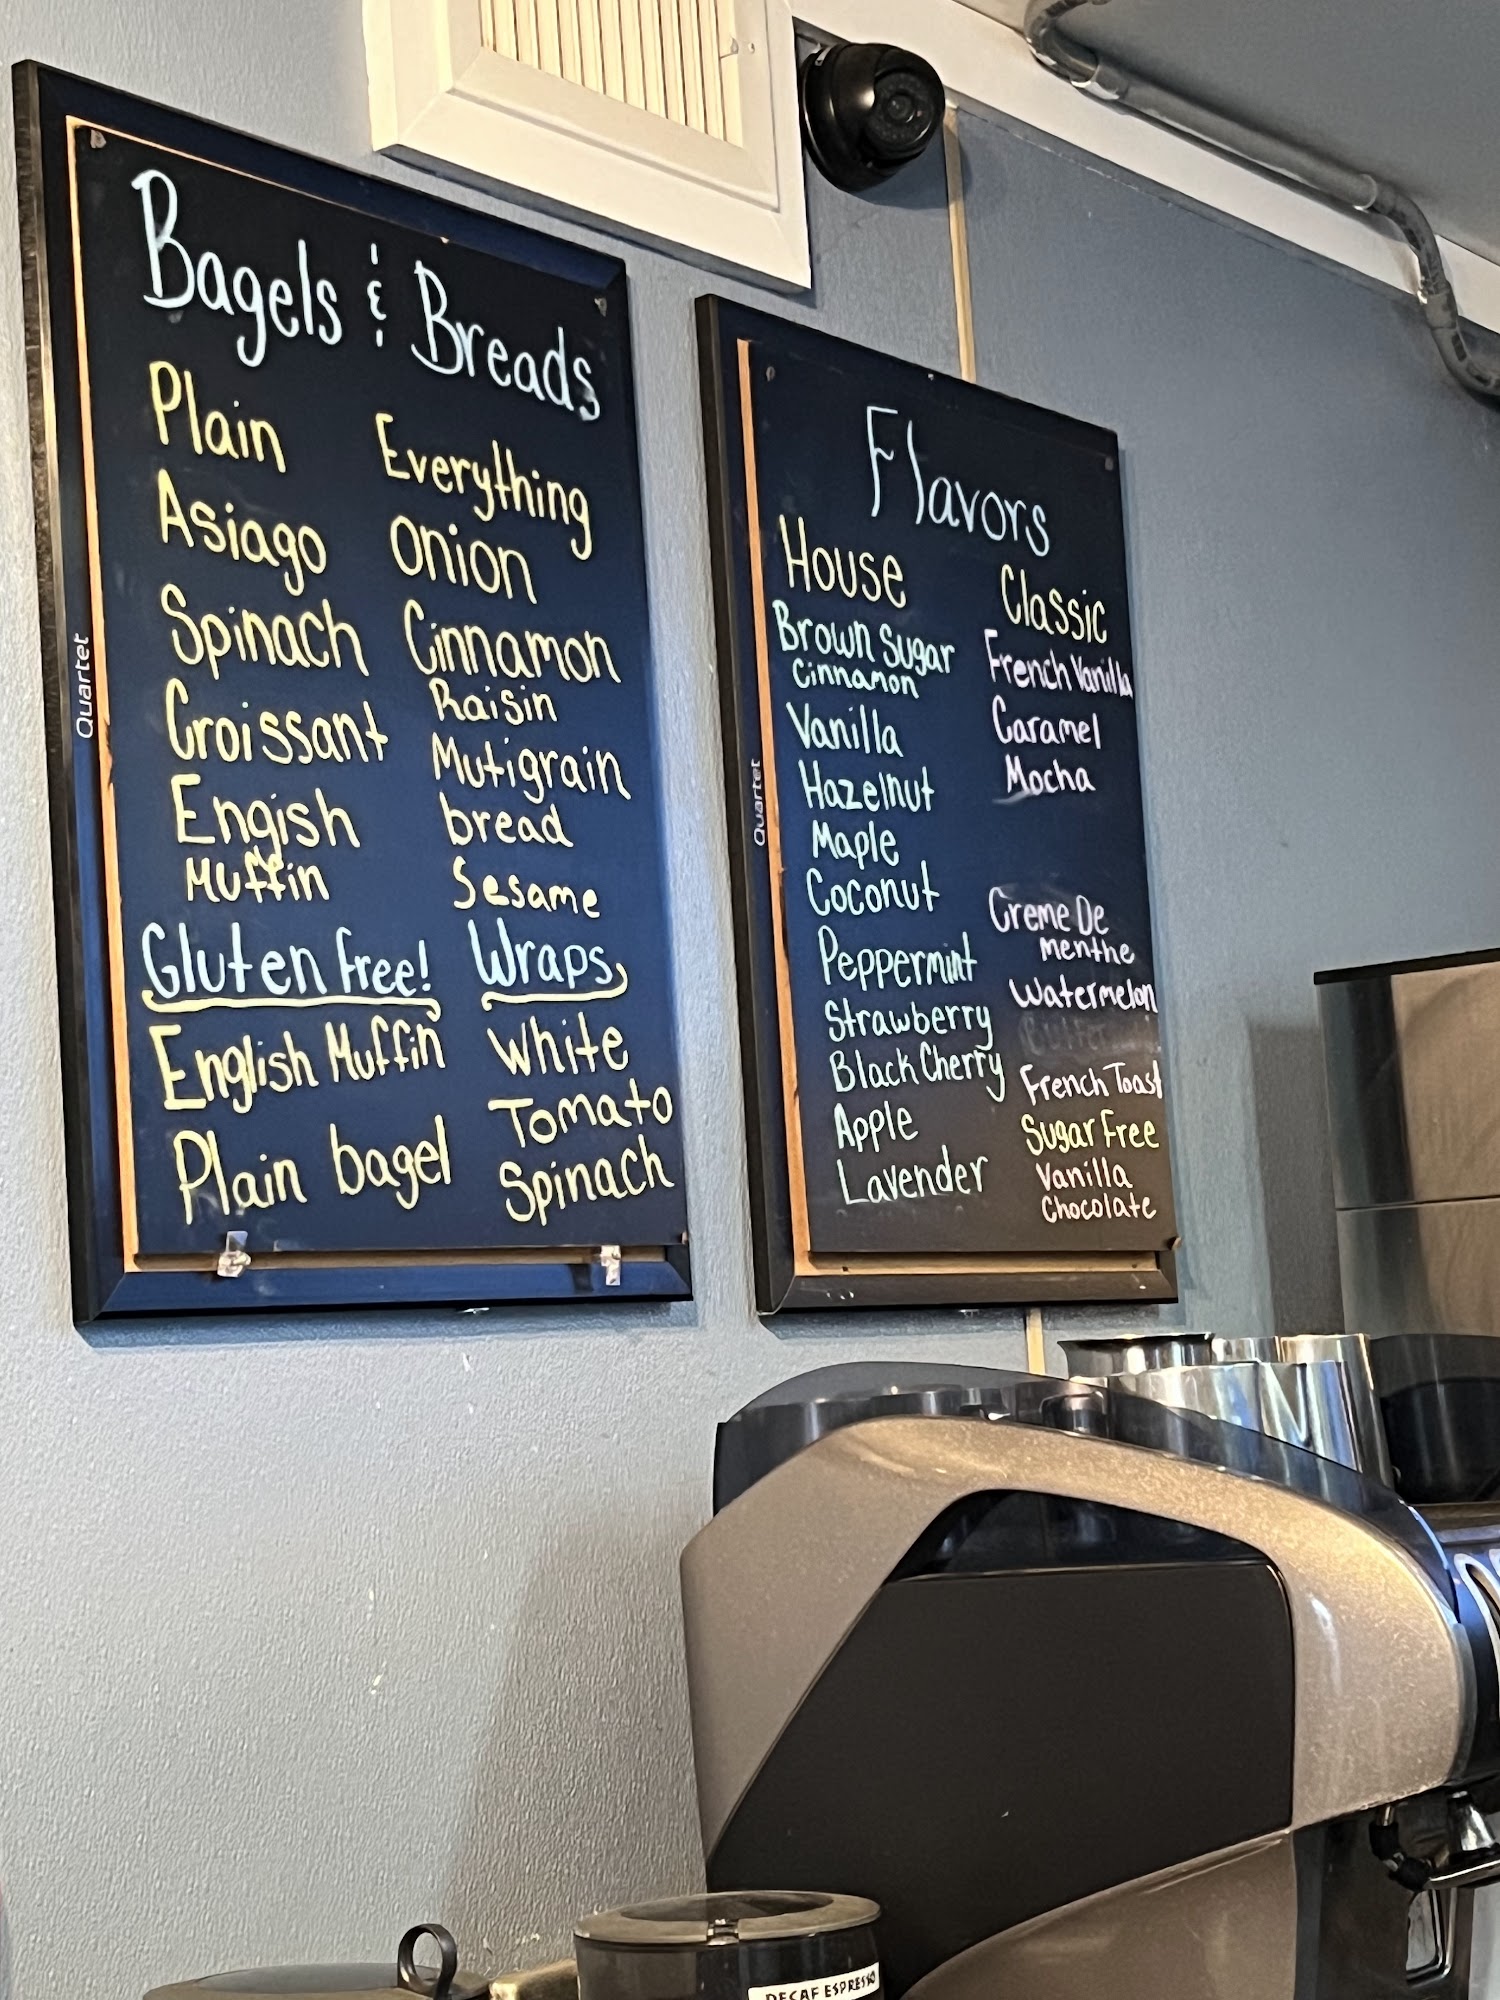 Bagels & Breads
Plain
Asiago
Spinach
Croissant
Engish
Muffin
Everything
Onion
Cinnamon
Raisin
Mutigrain
bread
Sesame
Gluten Free!
English Muffin
Plain bagel
Wraps
White
Tomato
Spinach
Quartet
Flavors
House
Brown Sugar
Cinnamon
Vanilla
Hazelnut
Maple
Coconut
Peppermint
Strawberry
Black Cherry
Apple
Lavender
Classic
French Vanilla
Caramel
Mocha
Creme De
menthe
Watermelon
French Toast
Sugar Free
Vanilla
Chocolate
Quartet
DECAF ESPRESSO